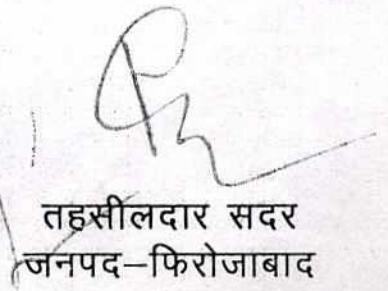 तहसीलदार सदर
जनपद–फिरोजाबाद